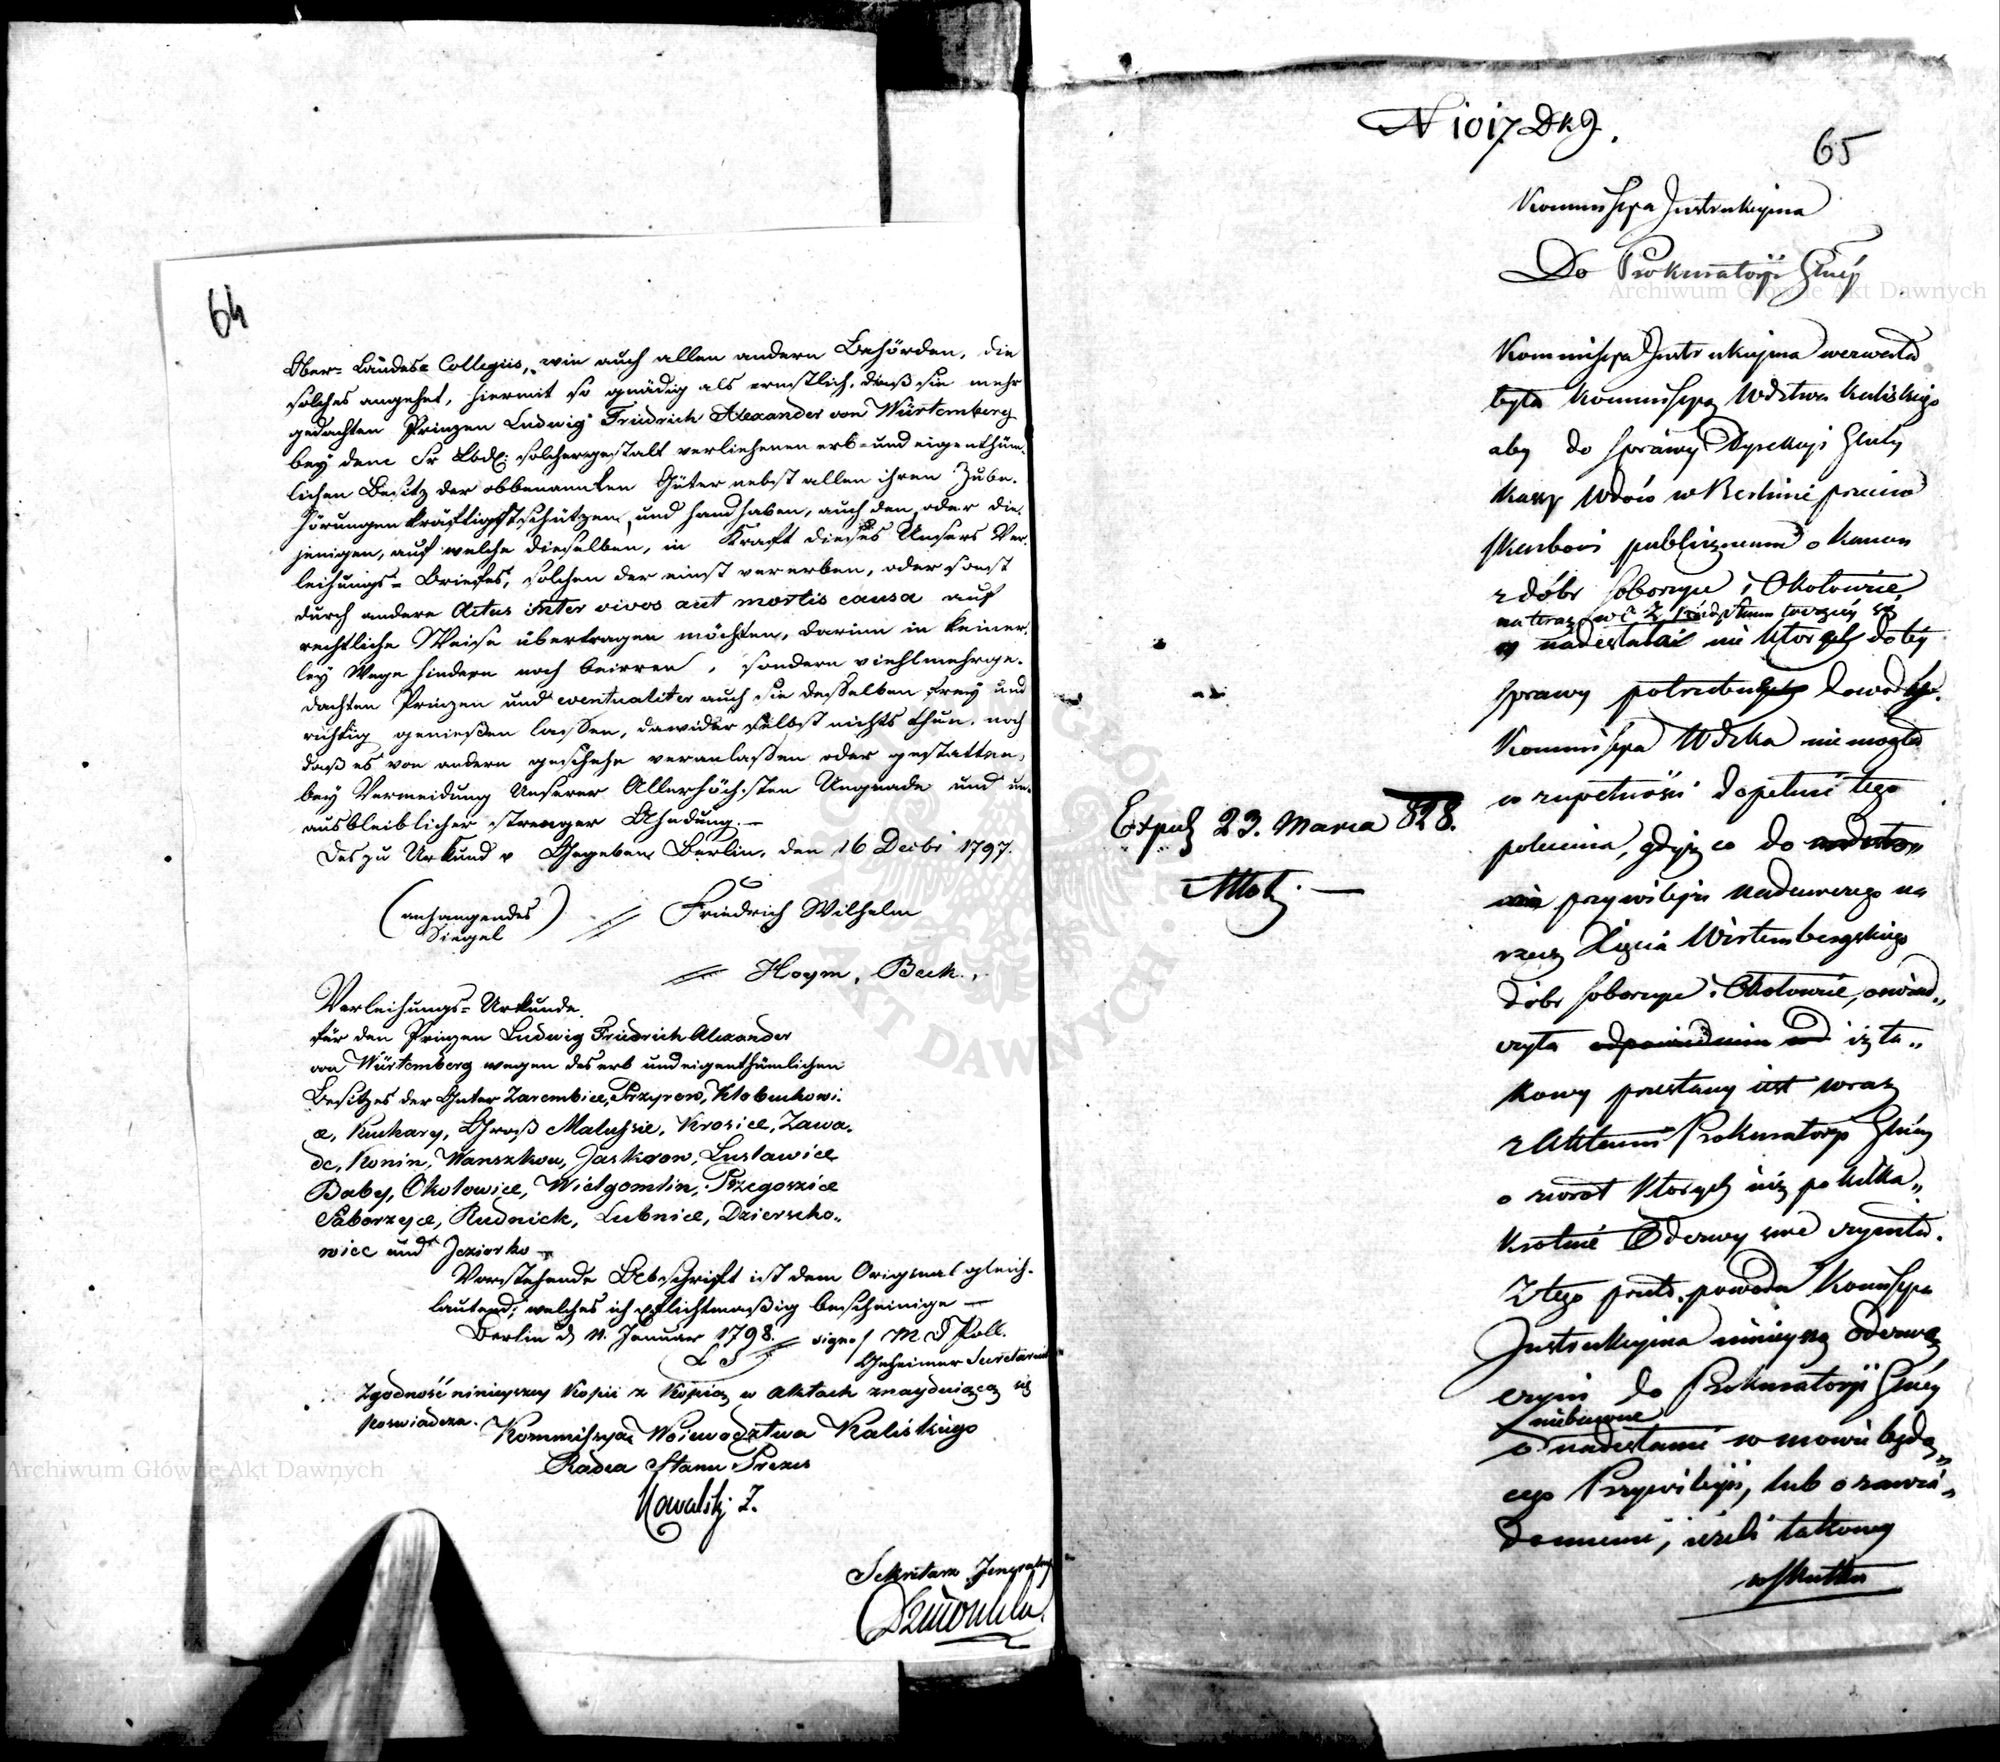 64
Ober-Landes-Collegiis, wie auch allen andern Behörden, die
solches angehet, hiermit so gnädig als ernstlich, daß sie mehr
gedachten Prinzen Ludwig Friedrich Alexander von Würtemberg
bey dem Sr Lbd: solchergestalt verliehenen erb- und eigenthüm-
lichen Besitz der obbenannten Güter nebst allen ihren Zube-
hörungen kräftigst schützen und handhaben, auch den, oder die-
jenigen, auf welche dieselben, in Kraft dieses Unsers Ver-
leihungs-Briefes, solchen der einst vererben, oder sonst
durch andere Actus inter vivos aut mortis causa auf
rechtliche Weise übertragen möchten, darinn in keiner-
ley Wege hindern noch beirren, sondern viehlmehr ge-
dachten Prinzen und eventualiter auch sie desselben frey und
richtig genießen lassen, dawider selbst nichts thun, noch
daß es von andern geschehe veranlassen oder gestatten,
bey Vermeidung Unserer Allerhöchsten Ungnade und un-
ausbleiblicher strenger Ahndung. —
Des zu Urkund p Gegeben Berlin, den 16 Decbr 1797.
(anhangendes Siegel) Friedrich Wilhelm
Hoym, Beck.
Verleihungs-Urkunde
für den Prinzen Ludwig Friedrich Alexander
von Würtemberg wegen des erb und eigenthümlichen
Besitzes der Guter Zarembice, Przyrow, Klobukowi-
ce, Kuchary, Groß Malussie, Krosice, Zawa-
de, Konin, Wanszkow, Jaskrow, Luslawice
Baby, Okolowice, Wielgomlin, Przegorzice
Saborzyce, Rudnick, Lubnice, Dzierscho-
wice und Jeziorko —
Vorstehende Abschrift ist dem Original gleich-
lautend; welches ich pflichtmaßig bescheinige —
Berlin d 11. Januar 1798. signo/ M d Poll.
L S Geheimer Secretair
Zgodność ninieyszey Kopii z Kopią w aktach znayduiącą się
poswiadcza. Kommissya Woiewództwa Kaliskiego
Radca Stanu Prezes
Kowalski Z.
Sekretarz Jeneralny
N 1017 DKg.
65
Kommissya Instrukcyjna
Do Prokuratoryi Głney
Kommissya Instrukcyjna wezwała
była Kommissyą Wdztwa Kaliskiego
aby do sprawy Dyrekcyi Głney
Kassy Wdów w Berlinie przeciw
Skarbowi publicznemu o kanon
z dóbr Soborzyce i Okołowice,
na teraz w
nadesłała nie których do tey
sprawy potrzebnych dowodów.
Kommissya Wdzka nie mogła
w zupełności dopełnić tego
polecenia, gdyż co do
przywileju nadawczego na
rzecz Xięcia Wirtembergskiego
dóbr Soborzyce i Okołowice, oświad„
czyła odpowiednim iż ta„
kowy przesłany iest wraz
z Aktami Prokuratoryi Głney
o zwrot których iuż po kilka„
krotnie Odezwy swe czyniła.
Z tego przeto powodu Komissya
Instrukcyjna ninieyszą odezwę
czyni do Prokuratoryi Głney
o niebawne
nadesłanie w mowie będą„
cego Przywileju, lub o zawia„
domienie, ieżeli takowy
w skutku
Exped 23. Marca 828.
Archiwum Główne Akt Dawnych
Archiwum Główne Akt Dawnych